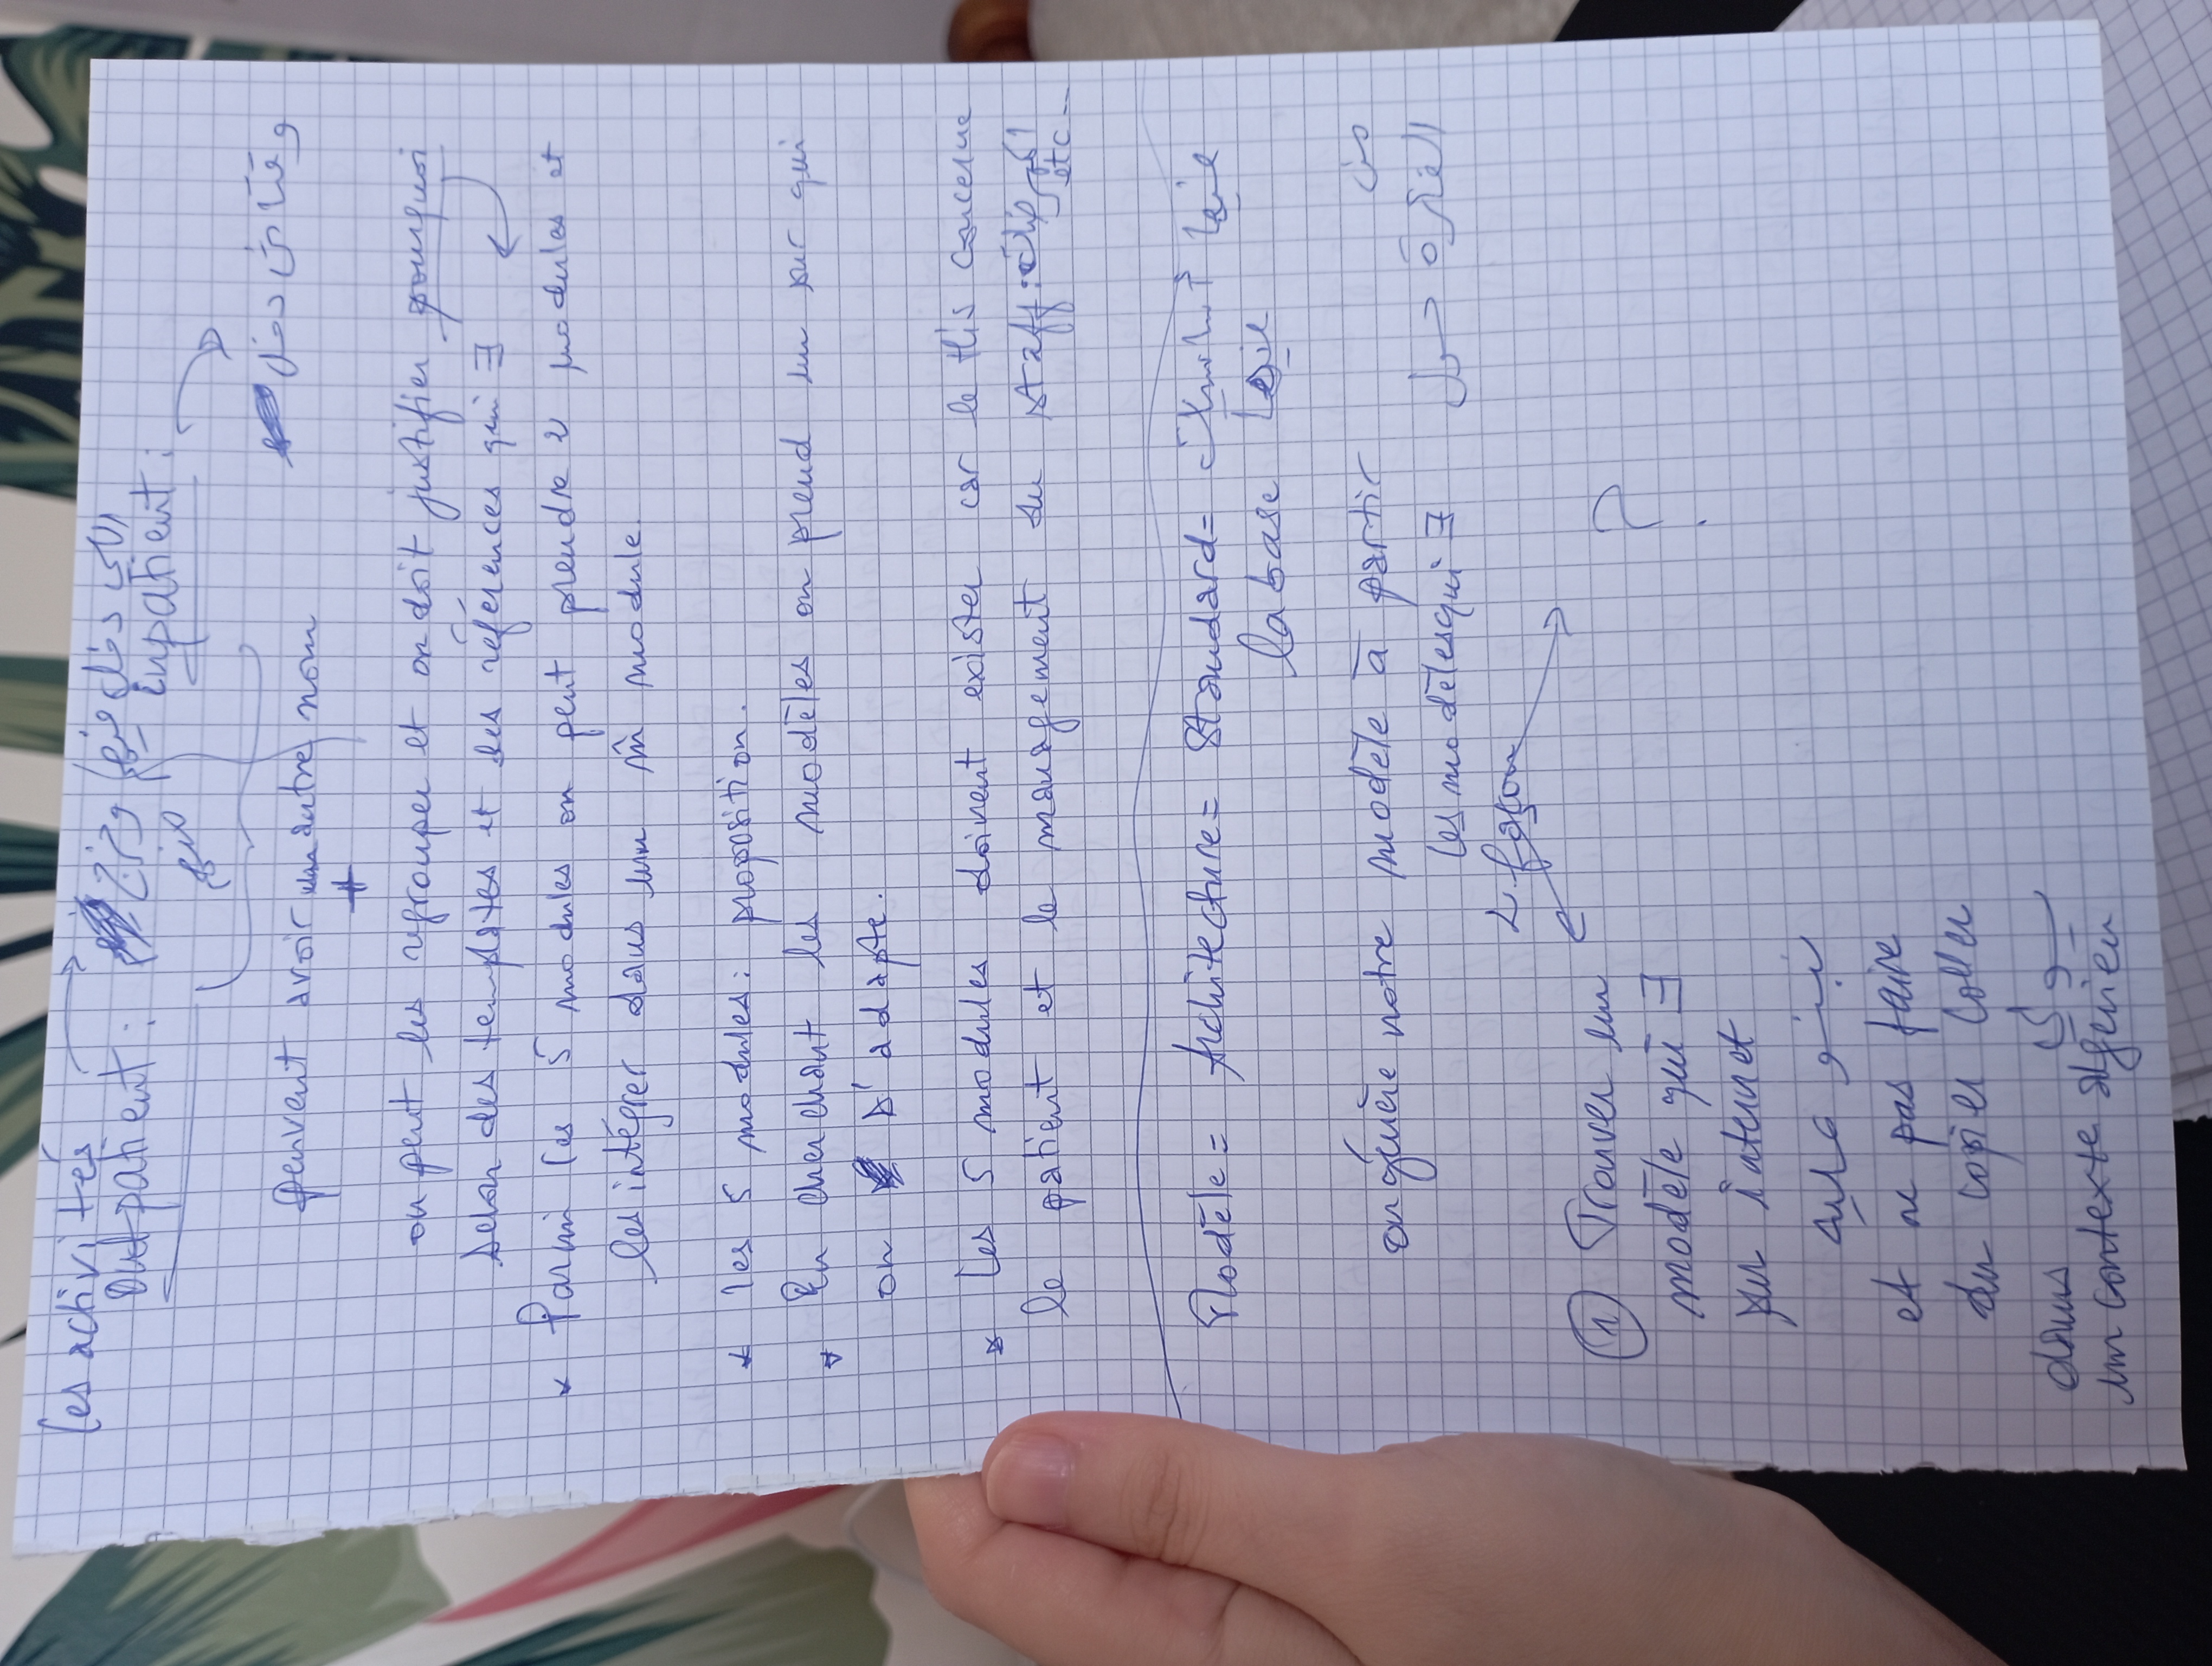 les activités
Outpatient : اللي دخل فيها وخرج
منع
inpatient :
وقتاش دخل
peuvent avoir un autre nom
+
on peut les regrouper et on doit justifier pourquoi
selon des templates et des références qui ∃
* Parmi les 5 modules on peut prendre 2 modules et
les intégrer dans un m̂ module.
* les 5 modules : proposition.
* En cherchant les modèles on prend un sur qui
on s'adapte.
* Les 5 modules doivent exister car le His concerne
le patient et le management du staff :
etc...
Modèle = Architecture = Standard = فيها
la base فيها
on génère notre modèle à partir من
les modèles qui ∃ الفكرة حول
2 façon
① Trouver un
modèle qui ∃
sur internet
نبنو عليه
et ne pas faire
du copier coller
dans سوى
un contexte algérien
?